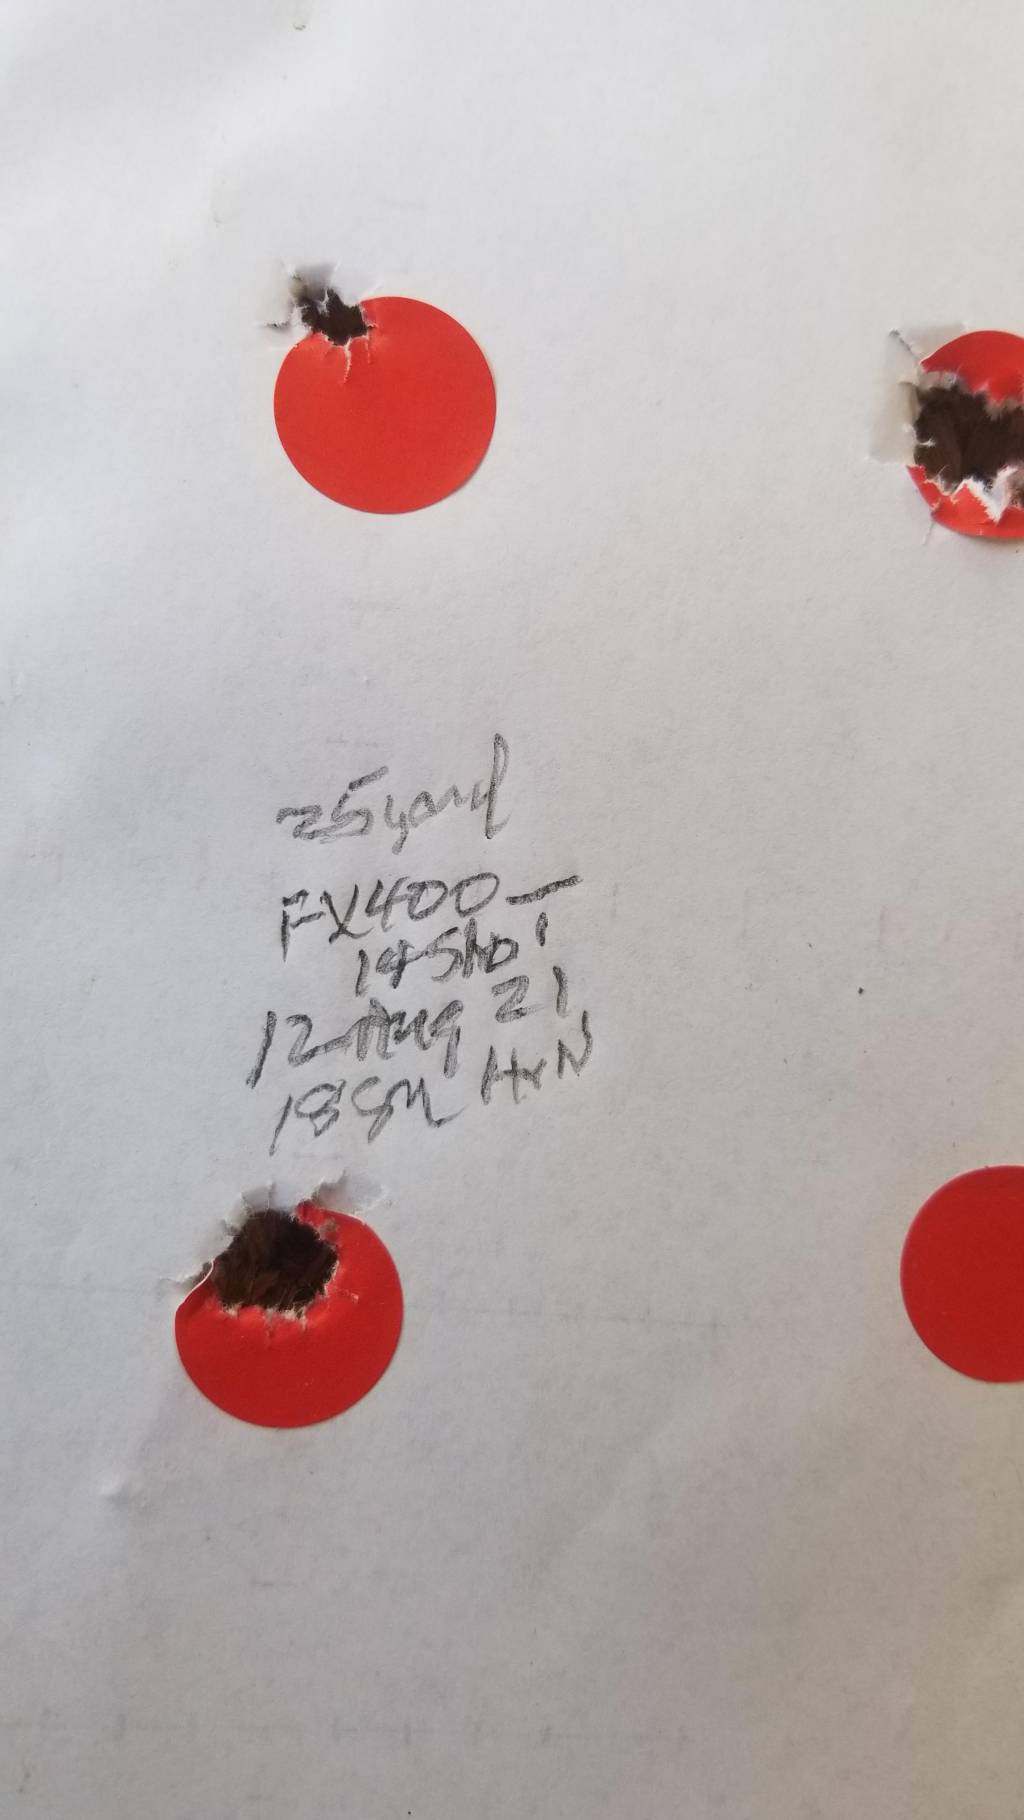 25 yard
FX400
14 Shot
12 Aug 21
18 gr HxN